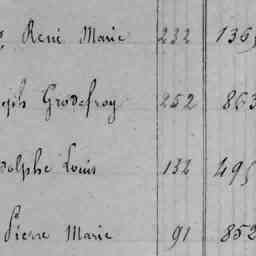 René Marie 232 1365
oph Grodefroy 252 863
dolphe Louis 132 495
Pierre Marie 91 852